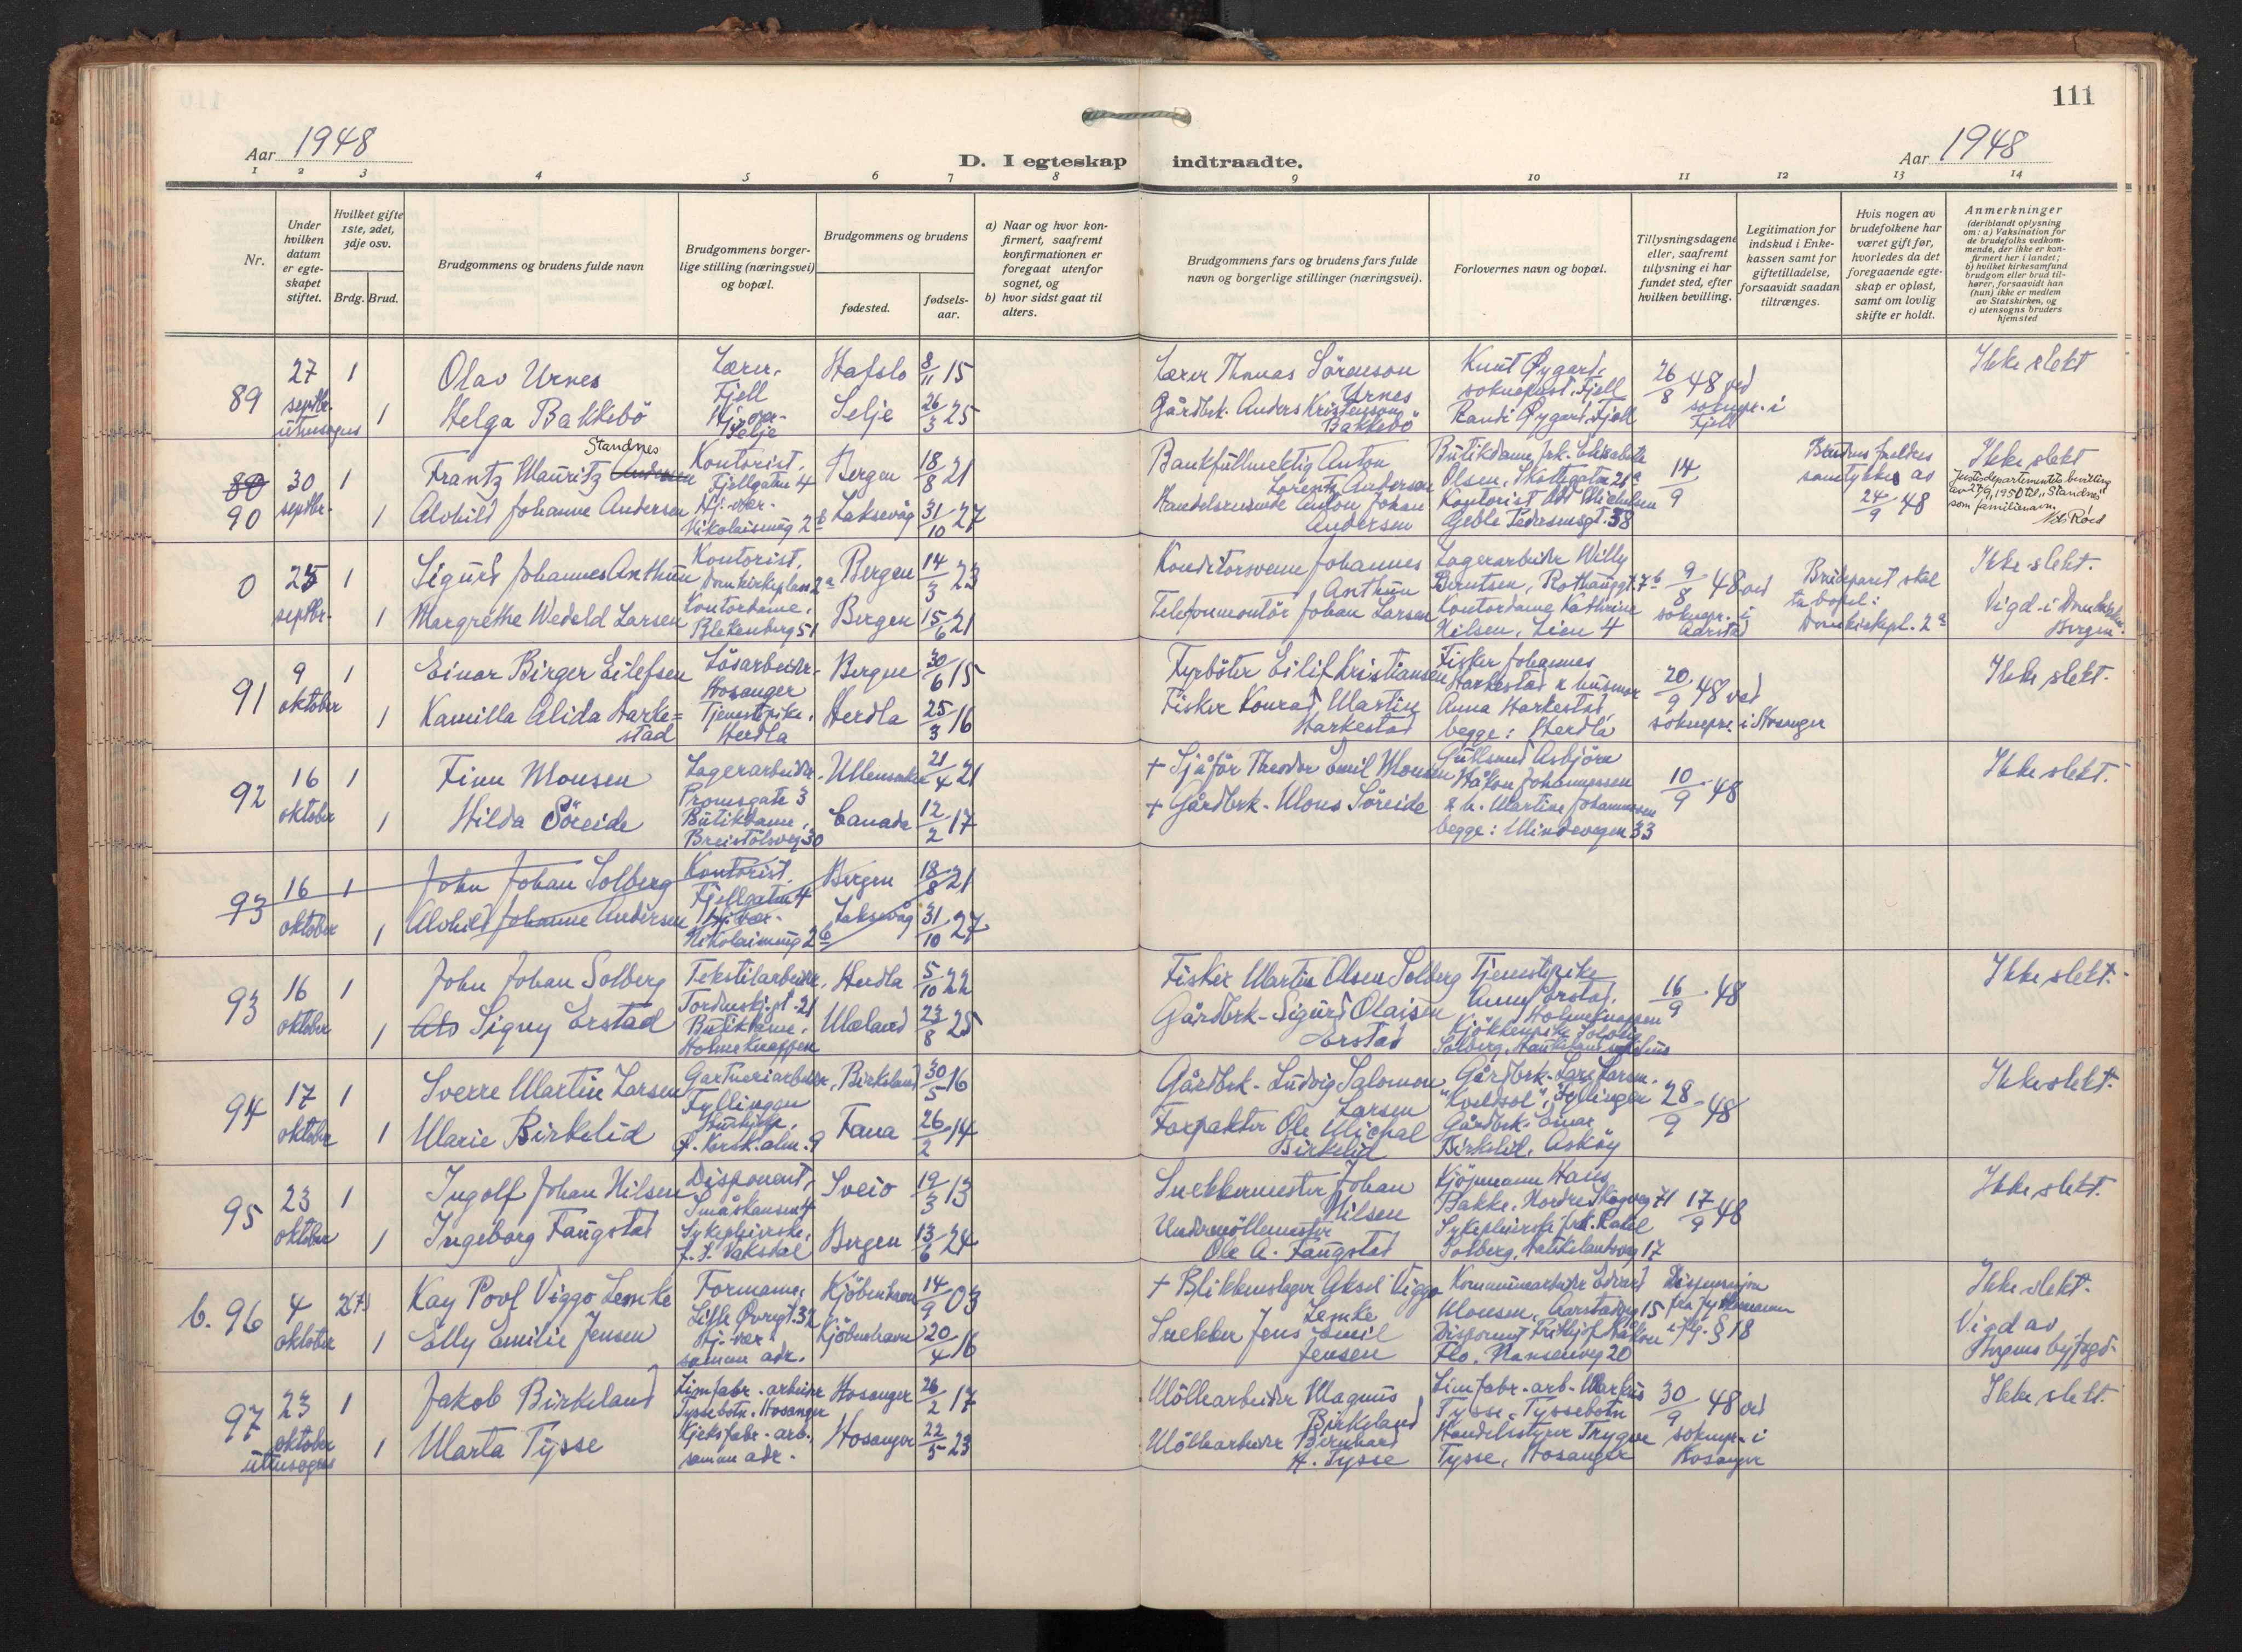 111
Aar 1948
D. I egteskap indtraadte.
Aar 1948
1 2 3 4 5 6 7 8 9 10 11 12 13 14
Nr.
Under hvilken datum er egte-skapet stiftet.
Hvilket gifte 1ste, 2det, 3dje osv.
Brdg. Brud.
Brudgommens og brudens fulde navn
Brudgommens borger-lige stilling (næringsvei) og bopæl.
Brudgommens og brudens
fødested.
fødsels-aar.
a) Naar og hvor kon-firmert, saafremt konfirmationen er foregaat utenfor sognet, og
b) hvor sidst gaat til alters.
Brudgommens fars og brudens fars fulde navn og borgerlige stillinger (næringsvei).
Forlovernes navn og bopæl.
Tillysningsdagene eller, saafremt tillysning ei har fundet sted, efter hvilken bevilling.
Legitimation for indskud i Enke-kassen samt for giftetilladelse, forsaavidt saadan tiltrænges.
Hvis nogen av brudefolkene har været gift før, hvorledes da det foregaaende egte-skap er opløst, samt om lovlig skifte er holdt.
Anmerkninger
(deriblandt oplysning om: a) Vaksination for de brudefolks vedkom-mende, der ikke er kon-firmert her i landet; b) hvilket kirkesamfund brudgom eller brud til-hører, forsaavidt han (hun) ikke er medlem av Statskirken, og c) utensogns bruders hjemsted
89 27 septbr. utensogns 1 Olav Urnes Lærer, Fjell Hafslo 8/11 15 Lærer Thomas Sörenson Urnes Knut Øygard, sokneprest, Fjell 26/8 48 ved soknepr. i Fjell Ikke slekt
1 Helga Bakkebö Hj. vær. Selje Selje 26/3 25 Gårdbrk. Anders Kristenson Bakkebö Randi Øygard, Fjell
89 90 30 septbr. 1 Frantz Mauritz Andersen Standnes Kontorist, Fjellgaten 4 Bergen 18/8 21 Bankfullmektig Anton Lorentz Andersen Butikdame frk. Elisabeth Olsen, Skottegaten 21a 14/9 Brudens foreldres samtykke av 24/9 48 Ikke slekt
Justisdepartementets bevilling av 27/9 1950 til "Standnes" som familienavn.
1 Alvhild Johanne Andersen Hj. vær. Nikolaismug 2b Laksevåg 31/10 27 Handelsreisende Anton Johan Andersen Kontorist Odd Michelsen Geble Pedersensgt. 38
0 25 septbr. 1 Sigurd Johannes Anthun Kontorist, Domkirkeplass 2a Bergen 14/3 23 Konditorsvenn Johannes Anthun Lagerarbeider Willy Berntsen, Rothauggt. 7b 9/8 48 ved soknepr. i Aarstad Brudeparet skal ta bopel: Domkirkepl. 2a Ikke slekt. Vigd i Domkirken. Bergen
1 Margrethe Wedeld Larsen Kontordame, Blekenberg 51 Bergen 15/6 21 Telefonmontör Johan Larsen Kontordame Kathrine Nilsen, Lien 4
91 9 oktober 1 Einar Birger Eilefsen Lösarbeider. Hosanger Bergen 30/6 15 Fyrböter Eilif Kristiansen Fisker Johannes Harkestad & husmor 20/9 48 ved soknepr. i Hosanger Ikke slekt.
1 Kamilla Alida Harke=stad Tjenestpike. Herdla Herdla 25/3 16 Fisker Konrad Martin Harkestad Anna Harkestad, begge: Herdla
92 16 oktober 1 Finn Monsen Lagerarbeider. Promsgate 3 Ullensaker 21/4 21 + Sjåfør Theodor Emil Monsen Gullsmed Asbjörn Håkon Johannessen 10/9 48 Ikke slekt.
1 Hilda Söreide Butikdame, Breistölsveg 30 Canada 12/2 17 + Gårdbrk. Mons Söreide & h. Martine Johannessen begge: Mindevegen 33
93 16 oktober 1 John Johan Solberg Kontorist. Fjellgaten 4 Bergen 18/8 21
1 Alvhild Johanne Andersen Hj. vær. Nikolaismug 2b Laksevåg 31/10 27
93 16 oktober 1 John Johan Solberg Tekstilarbeider, Tordenskj.gt. 21 Herdla 5/10 22 Fisker Martin Olsen Solberg Tjenestepike Anny Erstad, Holmeknappen 16/9 48 Ikke slekt.
1 Als Signy Erstad Butikdame. Holmeknappen Mæland 23/8 25 Gårdbrk. Sigurd Olaisen Erstad Kjökkenpike Solveig Solberg, Haukeland sykehus
94 17 oktober 1 Sverre Martin Larsen Gartneriarbeider, Fyllingen Birkeland 30/5 16 Gårdbrk. Ludvig Salomon Larsen Gårdbrk. Lars Larsen. "Kveldsol", Fyllingen 28/9 48 Ikke slekt.
1 Marie Birkelid Hushjelp, Ø. Korsk.alm. 9 Fana 26/2 14 Forpakter Ole Michal Birkelid Gårdbrk. Einar Birkelid, Asköy
95 23 oktober 1 Ingolf Johan Nilsen Disponent, Småskansen 4 Sveio 19/3 13 Snekkermester Johan Nilsen Kjöpmann Hans Bakke, Nordre Skogveg 71 17/9 48 Ikke slekt.
1 Ingeborg Faugstad Sykepleierske, f. t. Vaksdal Bergen 13/6 24 Undermöllemester Ole A. Faugstad Sykepleierske frk. Rakel Solberg, Haukelandsveg 17
b. 96 4 oktober 2(f) Kay Povl Viggo Lemke Formann, Lille Øvregt. 32 Kjöbenhavn 14/9 03 + Blikkenslager Aksel Viggo Lemke Kommunearbeider Edvard Monsen, Aarstadveg 15 Dispensasjon fra fylkesmannen iflg. § 18 Ikke slekt. Vigd av Bergens byfogd.
1 Elly Emilie Jensen Hj. vær. samme adr. Kjöbenhavn 20/4 16 Snekker Jens Emil Jensen Disponent Fridtjof Håkon Flo. Nansenveg 20
97 23 oktober utensogns 1 Jakob Birkeland Limfabr. arbeider Tyssebotn. Hosanger Hosanger 26/2 17 Möllearbeider Magnus Birkeland Limfabr. arb. Markus Tysse, Tyssebotn 30/9 48 ved soknepr. i Hosanger Ikke slekt.
1 Marta Tysse Kjeksfabr. arb. samme adr. Hosanger 22/5 23 Möllearbeider Bernhard H. Tysse Handelsstyrer Trygve Tysse, Hosanger